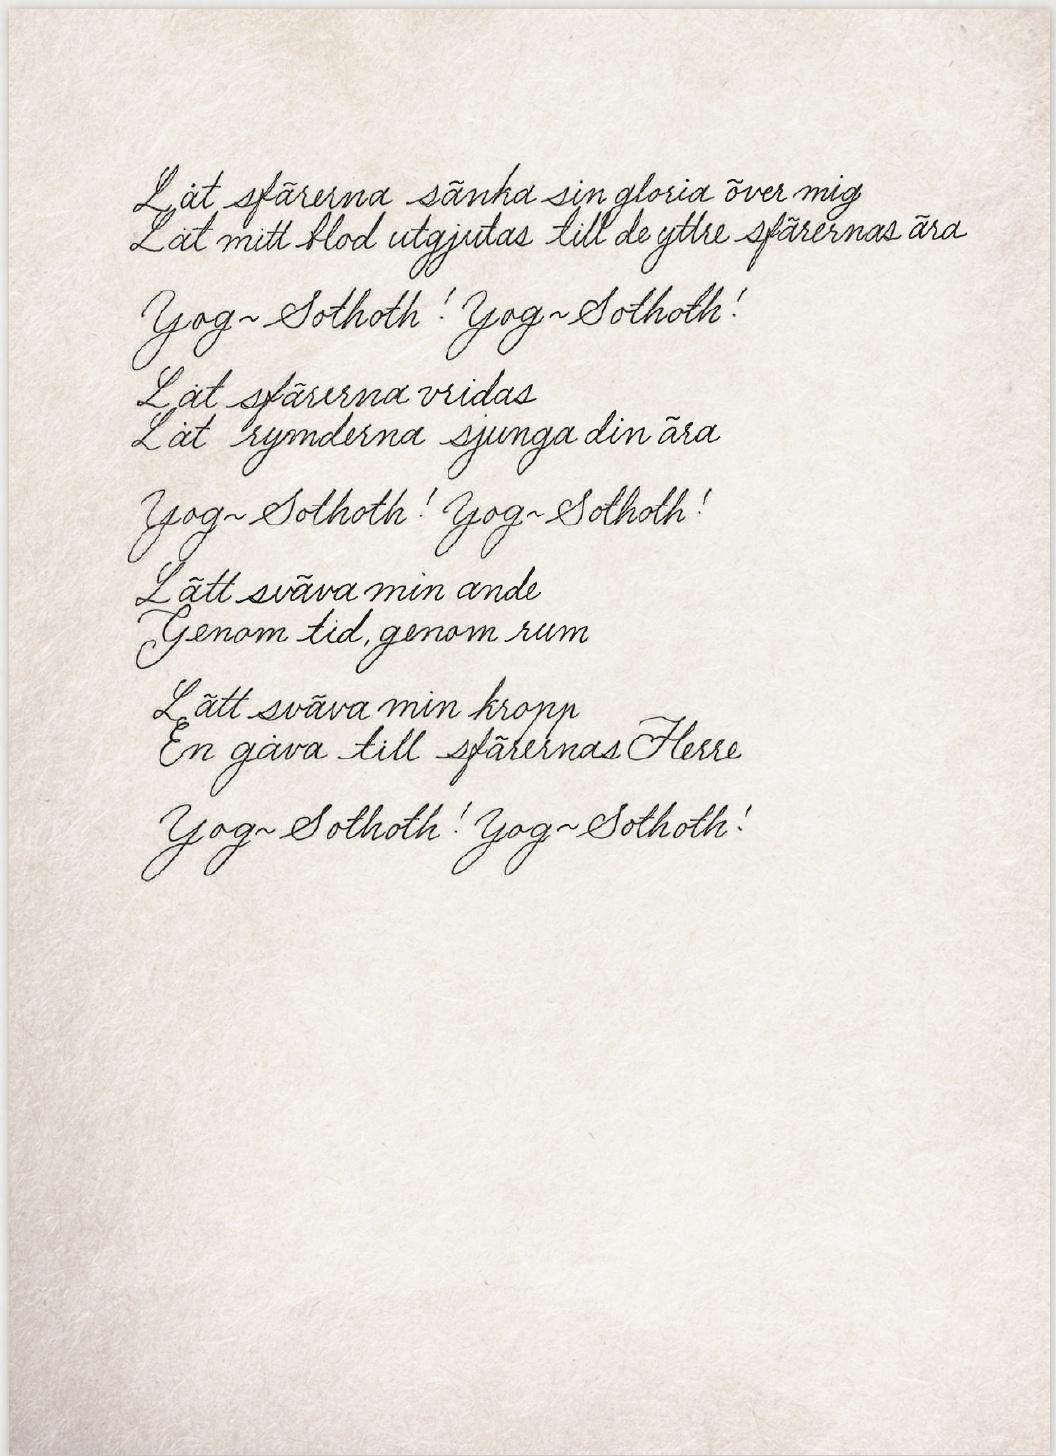 Låt sfärerna sänka sin gloria över mig
Låt mitt blod utgjutas till de yttre sfärernas ära
Yog~Sothoth! Yog~Sothoth!
Låt sfärerna vridas
Låt rymderna sjunga din ära
Yog~Sothoth! Yog~Sothoth!
Lätt sväva min ande
Genom tid, genom rum
Lätt sväva min kropp
En gåva till sfärernas Herre
Yog~Sothoth! Yog~Sothoth!